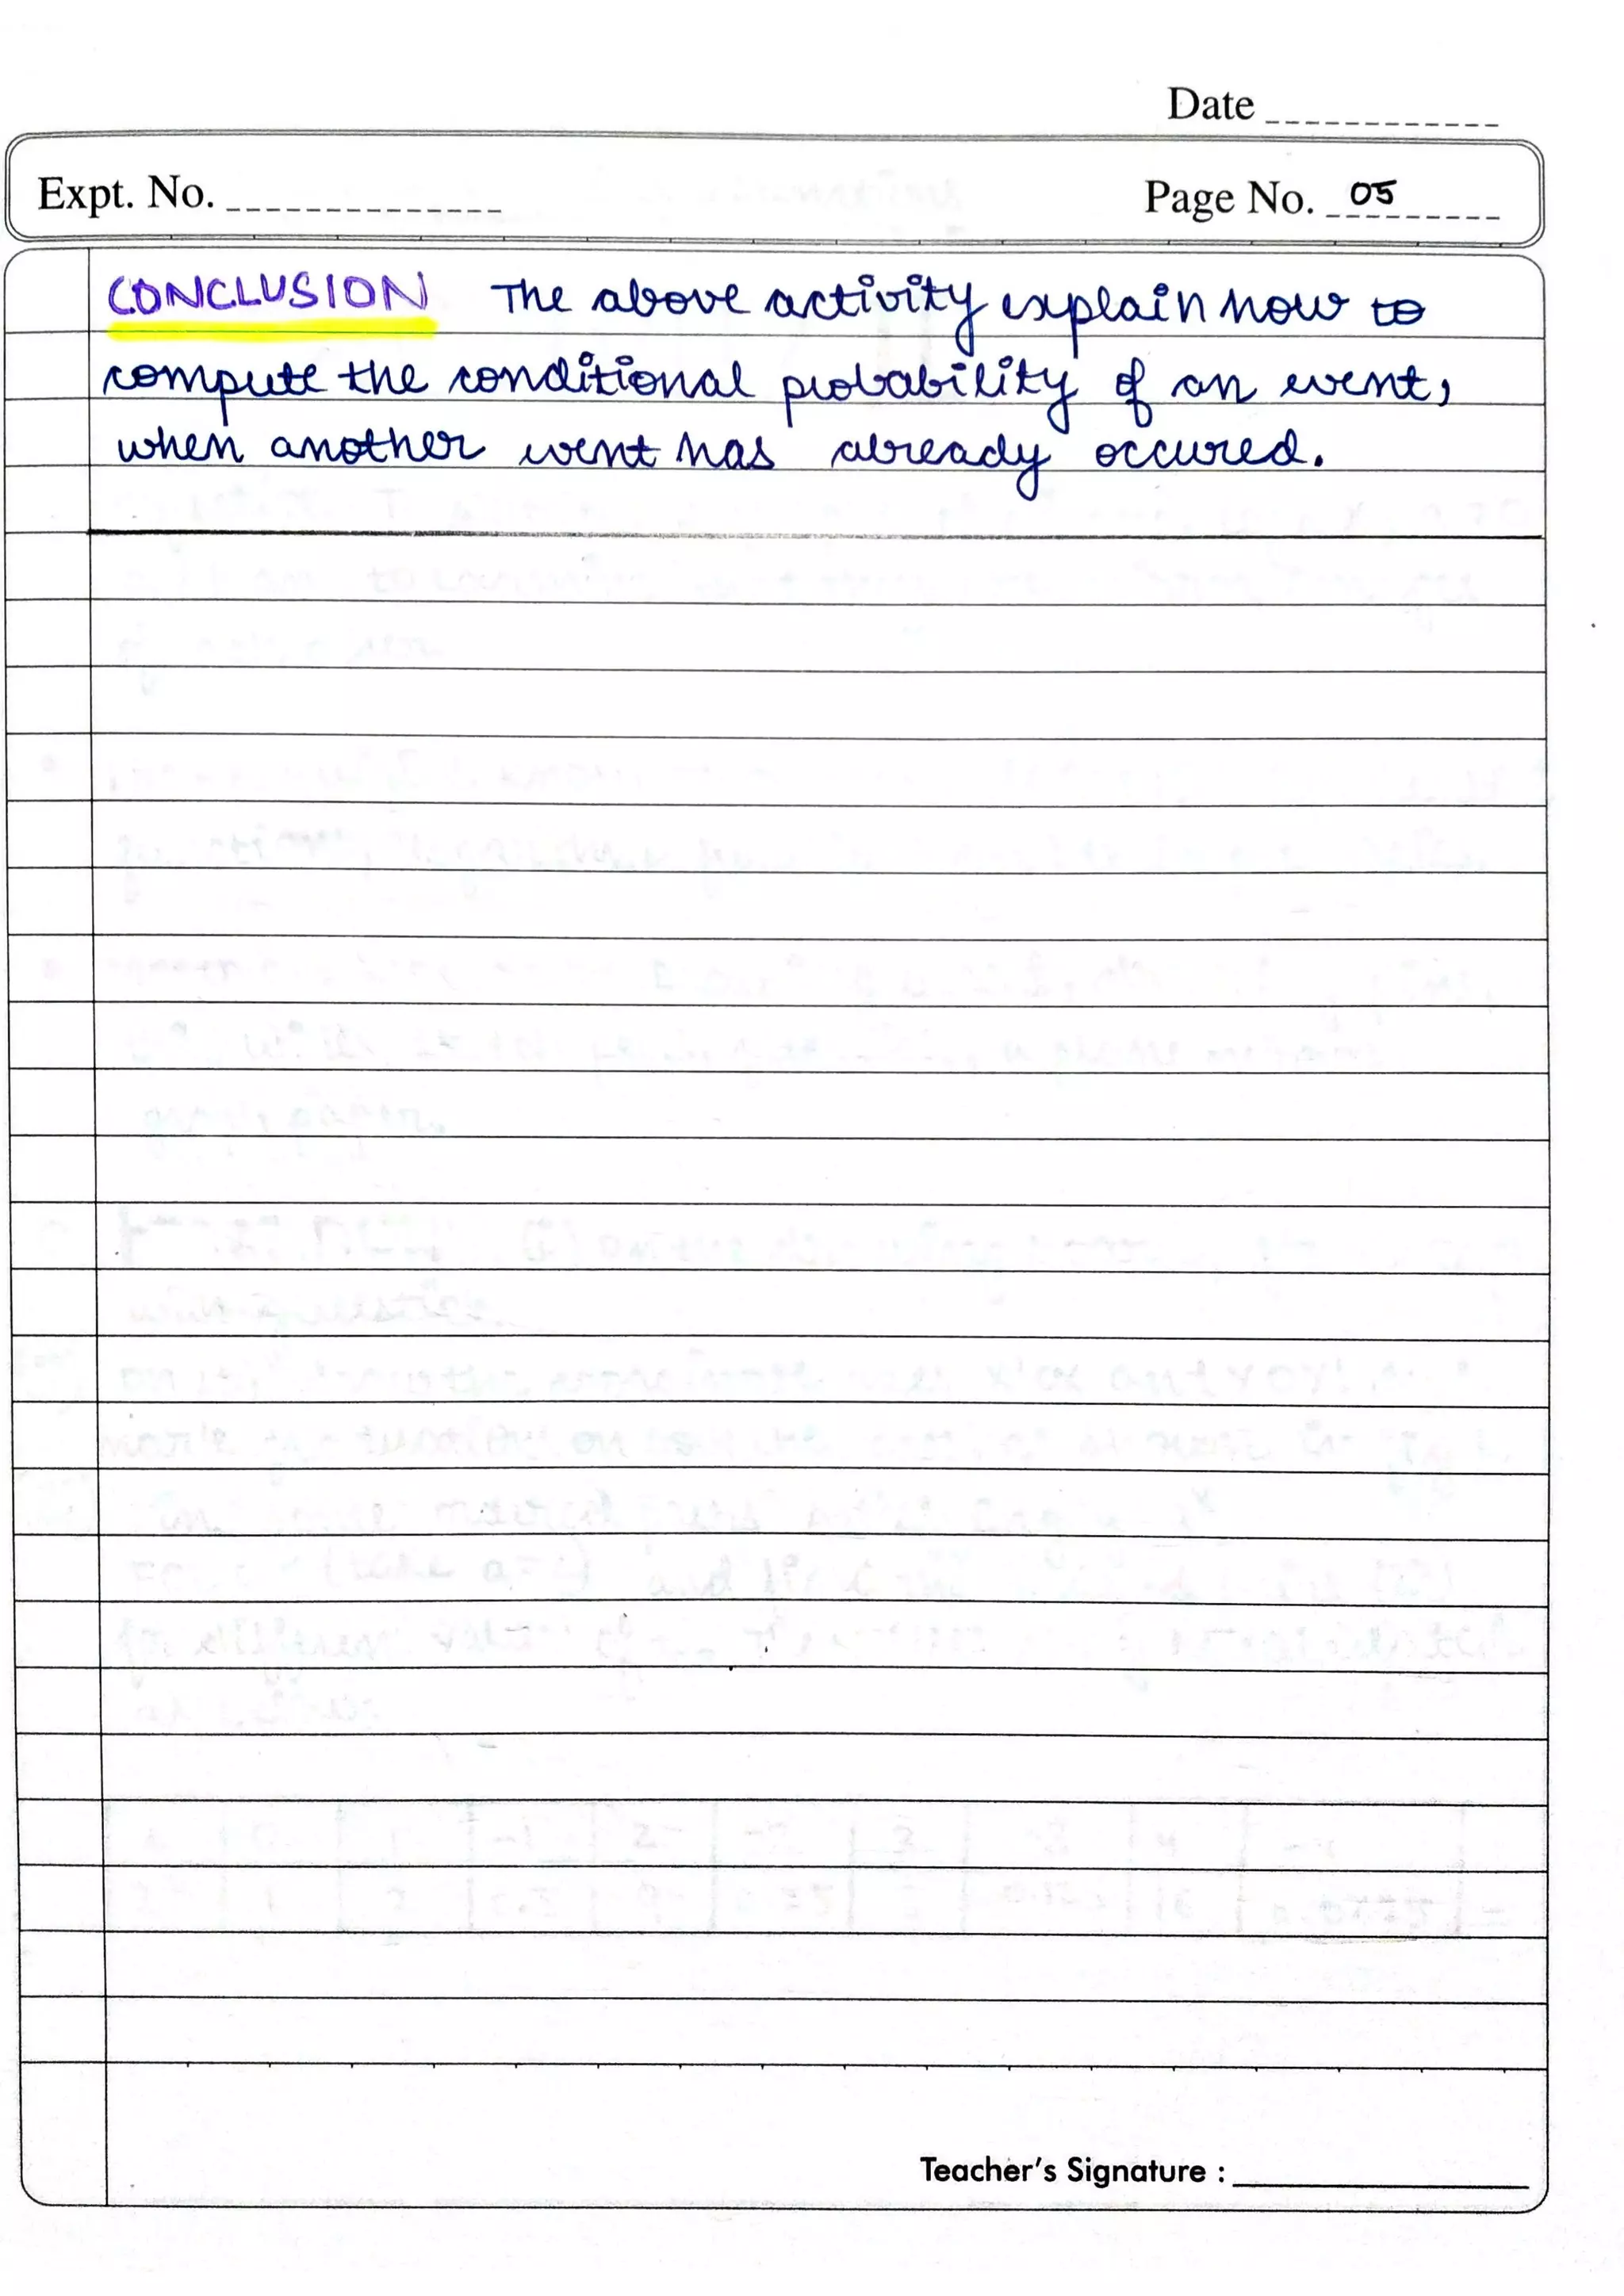 Date
Expt. No.
Page No. 05
CONCLUSION The above activity explain how to
compute the conditional probability of an event,
when another event has already occured.
Teacher's Signature :